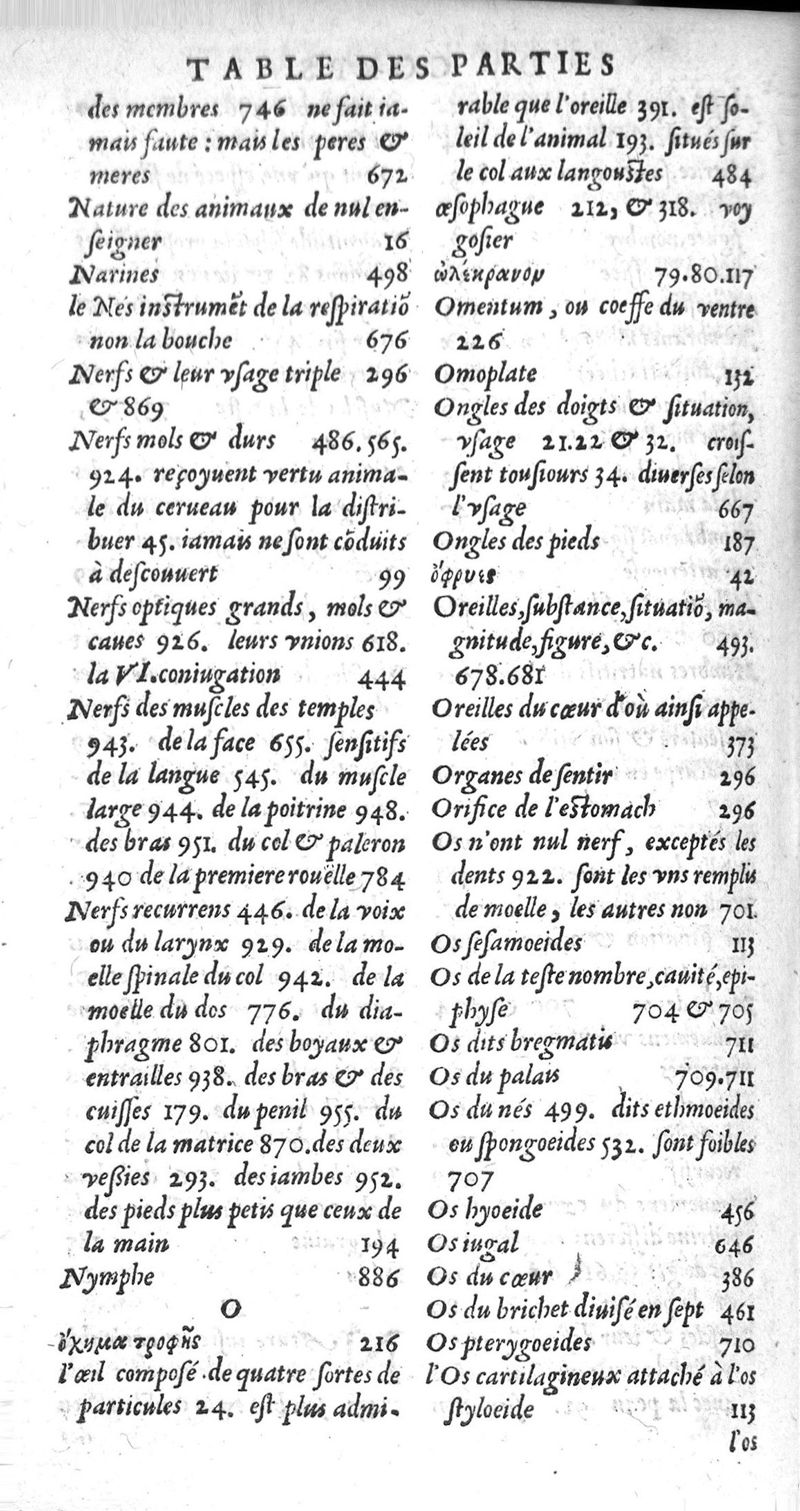 TABLE DES PARTIES
des membres 746 ne fait ia-
mais faute : mais les peres &
meres 672
Nature des animaux de nul en-
ſeigner 16
Narines 498
le Nés inſtrumēt de la reſpiratiō
non la bouche 676
Nerfs & leur vſage triple 296
& 869
Nerfs mols & durs 486.565.
924. reçoyuent vertu anima-
le du cerueau pour la diſtri-
buer 45. iamais ne ſont cōduits
à deſcouuert 99
Nerfs optiques grands, mols &
caues 926. leurs vnions 618.
la VI.coniugation 444
Nerfs des muſcles des temples
943. de la face 655. ſenſitifs
de la langue 545. du muſcle
large 944. de la poitrine 948.
des bras 951. du col & paleron
940 de la premiere rouëlle 784
Nerfs recurrens 446. de la voix
ou du larynx 929. de la mo-
elle ſpinale du col 942. de la
moelle du dos 776. du dia-
phragme 801. des boyaux &
entrailles 938. des bras & des
cuiſſes 179. du penil 955. du
col de la matrice 870.des deux
veſsies 293. des iambes 952.
des pieds plus petis que ceux de
la main 194
Nymphe 886
O
ὄχημα τροφῆς 216
l'œil compoſé de quatre ſortes de
particules 24. eſt plus admi-
rable que l'oreille 391. eſt ſo-
leil de l'animal 193. ſitués ſur
le col aux langouſtes 484
œſophague 212, & 318. voy
goſier
ὠλέκρανον 79.80.117
Omentum, ou coeffe du ventre
226
Omoplate 132
Ongles des doigts & ſituation,
vſage 21.22 & 32. croiſ-
ſent touſiours 34. diuerſes ſelon
l'vſage 667
Ongles des pieds 187
ὀφρυες 42
Oreilles,ſubſtance,ſituatiō, ma-
gnitude,figure,&c. 493.
678.681
Oreilles du cœur d'où ainſi appe-
lées 373
Organes de ſentir 296
Orifice de l'eſtomach 296
Os n'ont nul nerf, exceptés les
dents 922. ſont les vns remplis
de moelle, les autres non 701.
Os ſeſamoeides 113
Os de la teſte nombre,cauité,epi-
phyſe 704 & 705
Os dits bregmatis 711
Os du palais 709.711
Os du nés 499. dits ethmoeides
ou ſpongoeides 532. ſont foibles
707
Os hyoeide 456
Os iugal 646
Os du cœur 386
Os du brichet diuiſé en ſept 461
Os pterygoeides 710
l'Os cartilagineux attaché à l'os
ſtyloeide 113
l'os